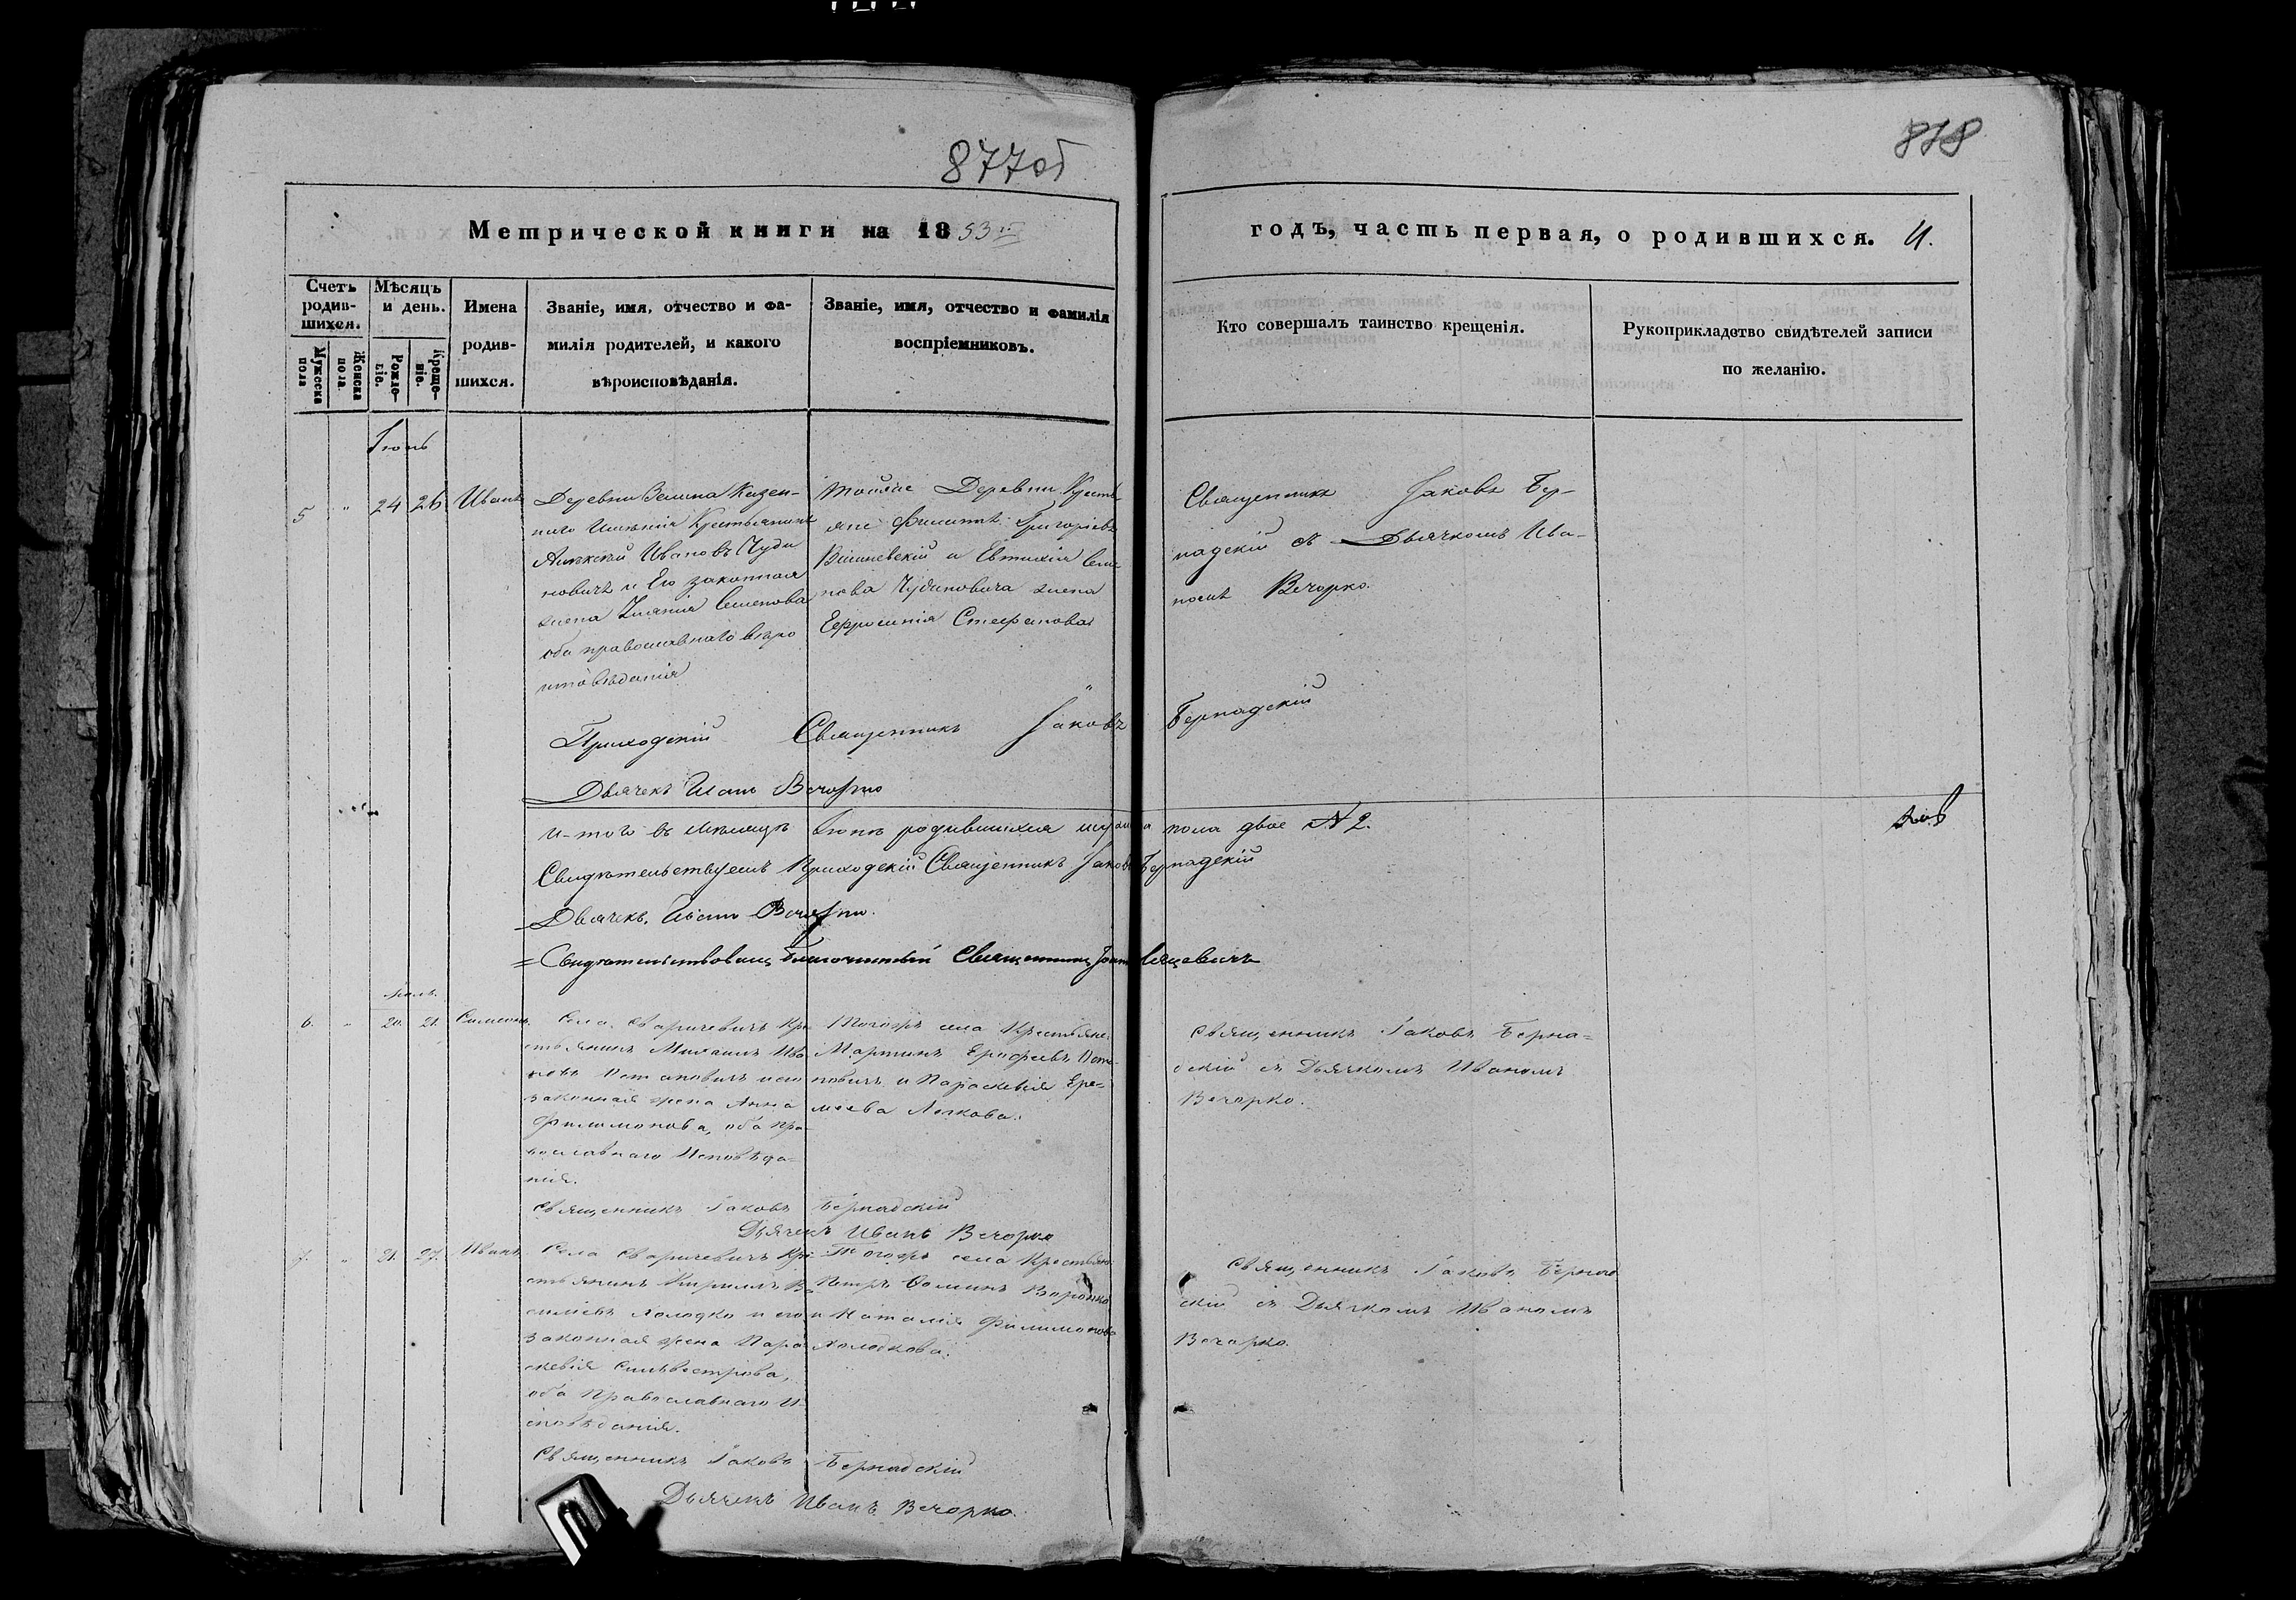 877об
878
Метрической книги на 1853й
годъ, часть первая, о родившихся. 4.
Счетъ родив-шихся.
Мужеска пола
Женска пола.
Мѣсяцъ и день.
Рожде-ніе.
Креще-ніе.
Имена
родив-
шихся.
Званіе, имя, отчество и фа-
милія родителей, и какого
вѣроисповѣданія.
Званіе, имя, отчество и фамилія
воспріемниковъ.
Кто совершалъ таинство крещенія.
Рукоприкладство свидѣтелей записи
по желанію.
Іюнь
5 " 24 26 Иванъ
Деревни Велина Казен-
наго Имѣнія Крестьянинъ
Алексѣй Ивановъ Чуди
новичъ и Его законная
жена Семенова
оба православнаго вѣро
исповѣданія
тойже Деревни Кресть
яне Филиппъ Григоріевъ
Вишневскій и Евтихія Семе
нова Чудиновича жена
Ефросинія Стефанова
Священникъ Іаковъ Бер-
надскій съ Дьячкомъ Ива-
номъ Вечорко.
Приходскій Священникъ Іаковъ Бернадскій
Дьячекъ Иванъ Вечорко
И-того въ мѣсяцѣ Іюнѣ родившихся мужеска пола двое № 2.
Свидѣтельствуемъ Приходскій Священникъ Іаковъ Бернадскій
Дьячекъ Иванъ Вечорко.
Свидѣтельствовалъ Благочинный Священникъ
Іюль.
6. " 20. 21. Симеонъ.
Села Сваричевичъ Кре
стьянинъ Михаилъ Ива
новъ Потаповичъ и его
законная жена Анна
Филимонова, оба пра
вославнаго Исповѣда-
нія.
Тогожъ села Крестьяне:
Мартинъ Ерофеевъ Пота-
повичъ и Параскевія Ере-
меева
Священникъ Іаковъ Берна=
дскій съ Дьячкомъ Иваномъ
Вечорко.
Священникъ Іаковъ Бернадскій
Дьячекъ Иванъ Вечорко
7. " 21. 27. Иванъ
Села Сваричевичъ Кре
стьянинъ Кириллъ Ва
силіевъ Холодко и его
законная жена Пара
скевія Сильвестрова,
оба Православнаго И-
сповѣданія.
Тогожъ села Крестьяне
Петръ Ѳоминъ Воронко
и Наталія Филимонова
Холодкова.
Священникъ Іаковъ Бернад
скій съ Дьячкомъ Иваномъ
Вечорко.
Священникъ Іаковъ Бернадскій
Дьячекъ Иванъ Вечорко.